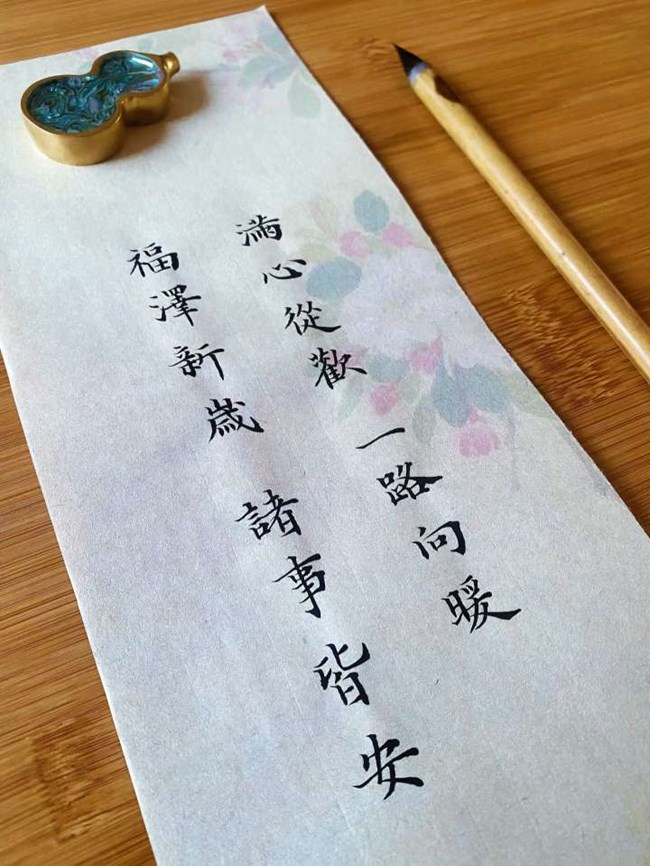 滿心從歡 一路向暖
福澤新歲 諸事皆安